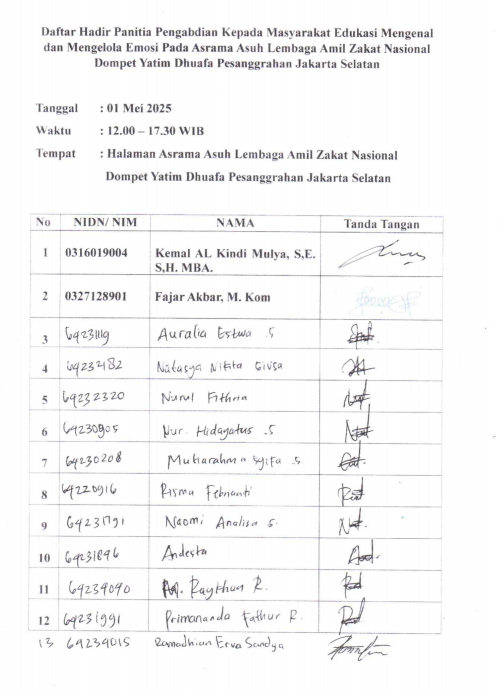 Daftar Hadir Panitia Pengabdian Kepada Masyarakat Edukasi Mengenal
dan Mengelola Emosi Pada Asrama Asuh Lembaga Amil Zakat Nasional
Dompet Yatim Dhuafa Pesanggrahan Jakarta Selatan
Tanggal : 01 Mei 2025
Waktu : 12.00 – 17.30 WIB
Tempat : Halaman Asrama Asuh Lembaga Amil Zakat Nasional
Dompet Yatim Dhuafa Pesanggrahan Jakarta Selatan
No NIDN/ NIM NAMA Tanda Tangan
1 0316019004 Kemal AL Kindi Mulya, S,E.
S,H. MBA.
2 0327128901 Fajar Akbar, M. Kom
3 64231119 Auralia Estwa .S
4 64232482 Natasya Nikita Givsa
5 64232320 Nurul Fithria
6 64230905 Nur. Hidayatus .S
7 64230208 Mutiarahma Syifa .S
8 64220916 Risma Febrianti
9 64231791 Naomi Analisa S.
10 64231896 Andesta
11 64234040 M. Raythan R.
12 64231991 Primananda Fathur R.
13 64234015 Ramadhian Erva Sandya